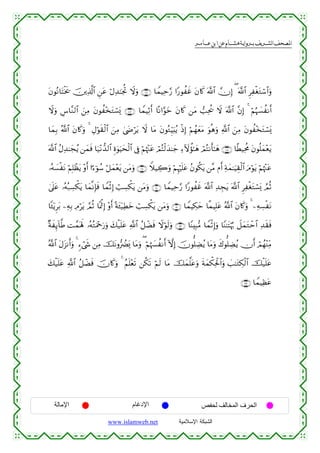 المصحف الشريف برواية هشام عن ابن عامر
وَٱسْتَغْفِرِ ٱللَّهَ ۖ إِنَّ ٱللَّهَ كَانَ غَفُورًا رَّحِيمًا وَلَا تُجَٰدِلْ عَنِ ٱلَّذِينَ يَخْتَانُونَ
أَنفُسَهُمْ ۚ إِنَّ ٱللَّهَ لَا يُحِبُّ مَن كَانَ خَوَّانًا أَثِيمًا يَسْتَخْفُونَ مِنَ ٱلنَّاسِ وَلَا
يَسْتَخْفُونَ مِنَ ٱللَّهِ وَهُوَ مَعَهُمْ إِذْ يُبَيِّتُونَ مَا لَا يَرْضَىٰ مِنَ ٱلْقَوْلِ ۚ وَكَانَ ٱللَّهُ بِمَا
يَعْمَلُونَ مُحِيطًا هَٰٓأَنتُمْ هَٰٓؤُلَآءِ جَٰدَلْتُمْ عَنْهُمْ فِى ٱلْحَيَوٰةِ ٱلدُّنْيَا فَمَن يُجَٰدِلُ ٱللَّهَ
عَنْهُمْ يَوْمَ ٱلْقِيَٰمَةِ أَم مَّن يَكُونُ عَلَيْهِمْ وَكِيلًا وَمَن يَعْمَلْ سُوٓءًا أَوْ يَظْلِمْ نَفْسَهُۥ
ثُمَّ يَسْتَغْفِرِ ٱللَّهَ يَجِدِ ٱللَّهَ غَفُورًا رَّحِيمًا وَمَن يَكْسِبْ إِثْمًا فَإِنَّمَا يَكْسِبُهُۥ عَلَىٰ
نَفْسِهِۦ ۚ وَكَانَ ٱللَّهُ عَلِيمًا حَكِيمًا وَمَن يَكْسِبْ خَطِيٓـَٔةً أَوْ إِثْمًا ثُمَّ يَرْمِ بِهِۦ بَرِيٓـًٔا
فَقَدِ ٱحْتَمَلَ بُهْتَٰنًا وَإِثْمًا مُّبِينًا وَلَوْلَا فَضْلُ ٱللَّهِ عَلَيْكَ وَرَحْمَتُهُۥ لَهَمَّت طَّآئِفَةٌ
مِّنْهُمْ أَن يُضِلُّوكَ وَمَا يُضِلُّونَ إِلَّآ أَنفُسَهُمْ ۖ وَمَا يَضُرُّونَكَ مِن شَىْءٍ ۚ وَأَنزَلَ ٱللَّهُ
عَلَيْكَ ٱلْكِتَٰبَ وَٱلْحِكْمَةَ وَعَلَّمَكَ مَا لَمْ تَكُن تَعْلَمُ ۚ وَكَانَ فَضْلُ ٱللَّهِ عَلَيْكَ
عَظِيمًا
الحرف المخالف لحفص الإدغام الإمالة
www.islamweb.net الشبكة الإسلامية